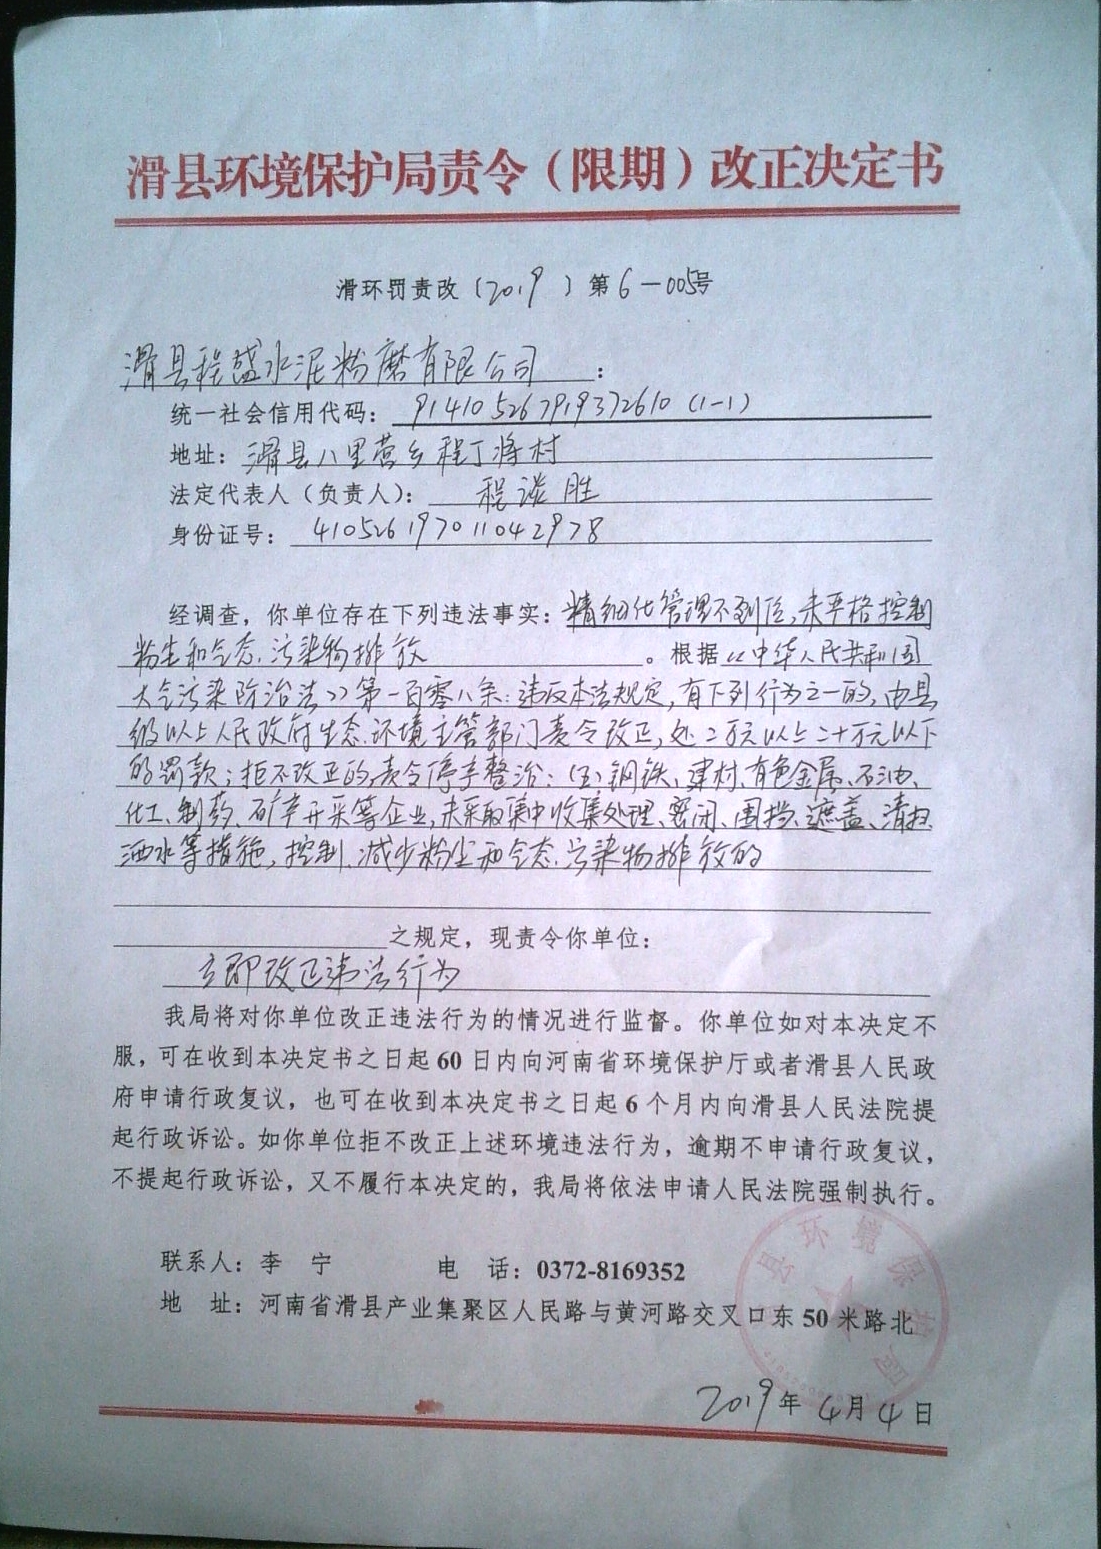 滑县环境保护局责令（限期）改正决定书
滑环罚责改（2019）第6-005号
滑县程盛水泥粉磨有限公司：
统一社会信用代码：914105267919372610（1-1）
地址：滑县八里营乡程丁将村
法定代表人（负责人）：程淡胜
身份证号：410526197011042978
经调查，你单位存在下列违法事实：精细化管理不到位，未严格控制
粉尘和气态污染物排放。根据《中华人民共和国
大气污染防治法》第一百零八条：违反本法规定，有下列行为之一的，由县
级以上人民政府生态环境主管部门责令改正，处2万元以上二十万元以下
的罚款；拒不改正的，责令停产整治：（五）钢铁、建材、有色金属、石油、
化工、制药、矿产开采等企业，未采取集中收集处理、密闭、围挡、遮盖、清扫
洒水等措施，控制、减少粉尘和气态污染物排放的
之规定，现责令你单位：
立即改正违法行为
我局将对你单位改正违法行为的情况进行监督。你单位如对本决定不
服，可在收到本决定书之日起60日内向河南省环境保护厅或者滑县人民政
府申请行政复议，也可在收到本决定书之日起6个月内向滑县人民法院提
起行政诉讼。如你单位拒不改正上述环境违法行为，逾期不申请行政复议，
不提起行政诉讼，又不履行本决定的，我局将依法申请人民法院强制执行。
联系人：李 宁 电 话：0372-8169352
地 址：河南省滑县产业集聚区人民路与黄河路交叉口东50米路北
县环境保护局
2019年4月4日